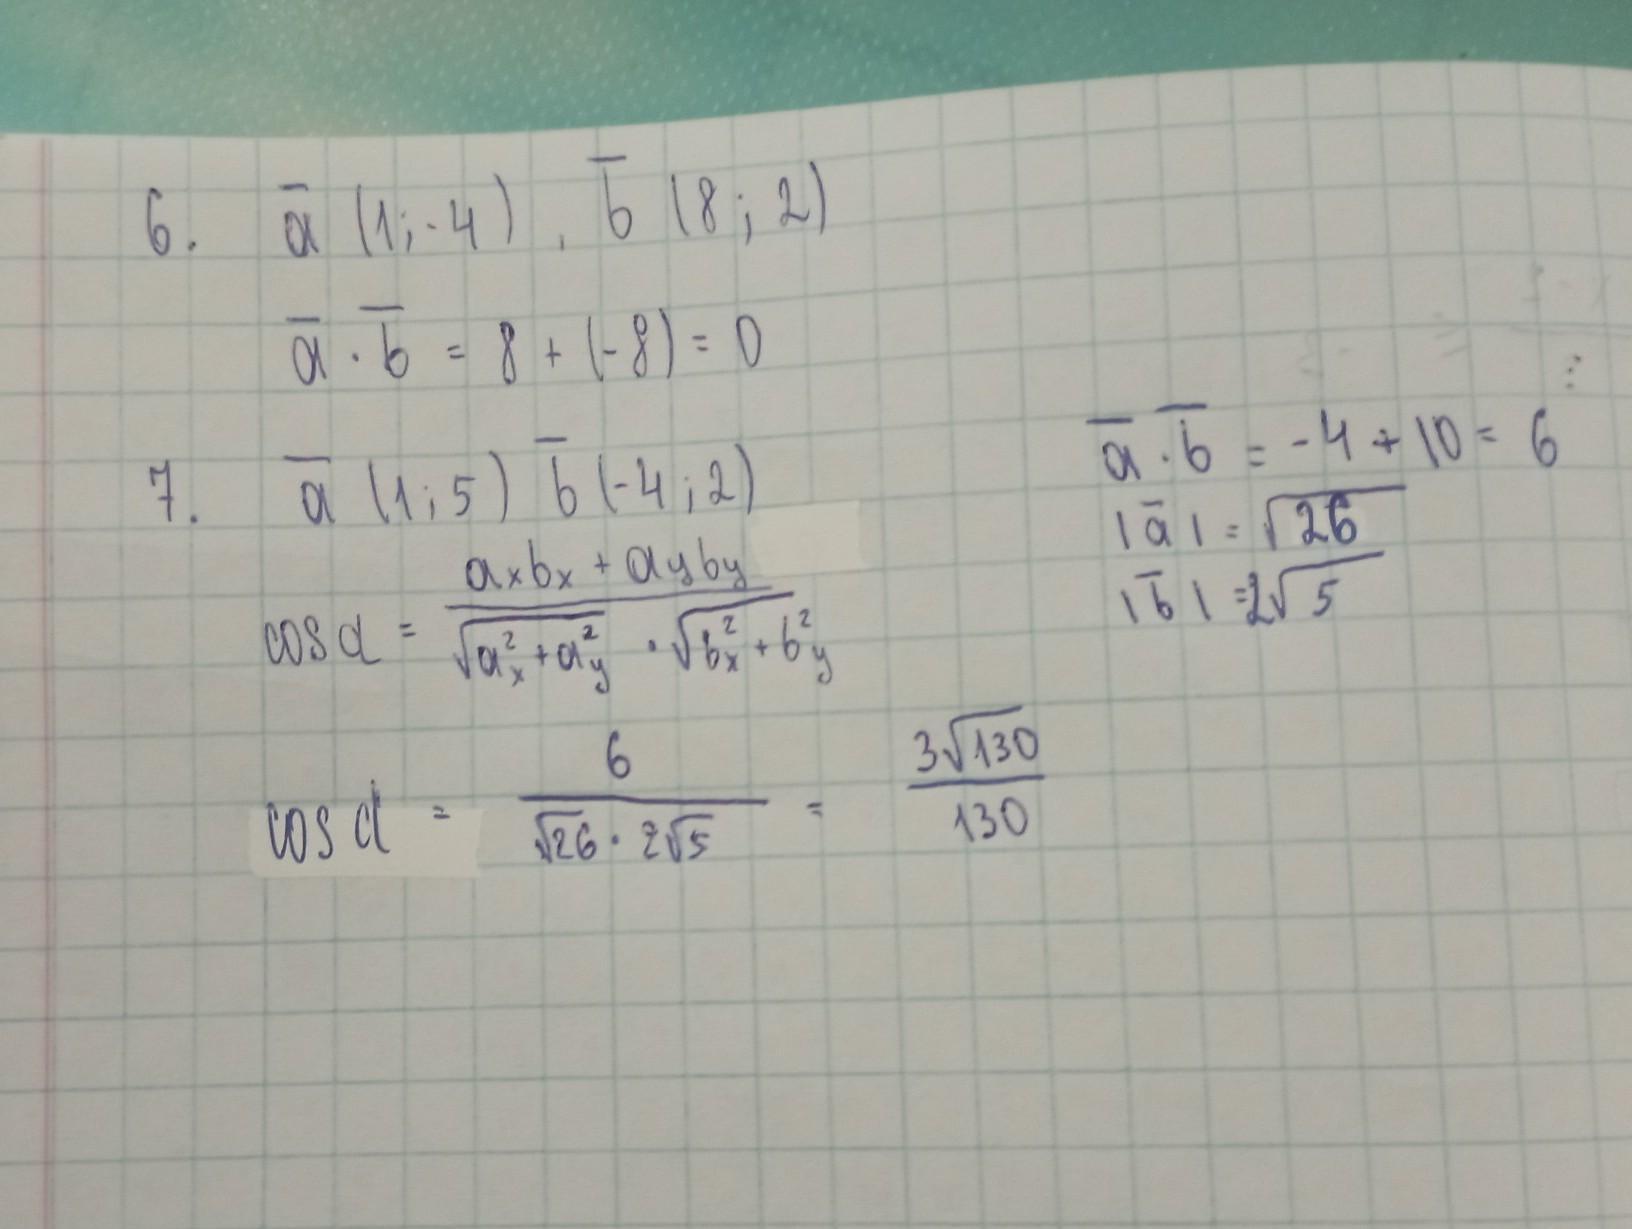 6. a̅ (1; -4), b̅ (8; 2)
a̅ · b̅ = 8 + (-8) = 0
7. a̅ (1; 5) b̅ (-4; 2)
cos α = (aₓbₓ + a_y b_y) / (√(aₓ² + a_y²) · √(bₓ² + b_y²))
cos α = 6 / (√26 · 2√5) = 3√130 / 130
a̅ · b̅ = -4 + 10 = 6
|a̅| = √26
|b̅| = 2√5